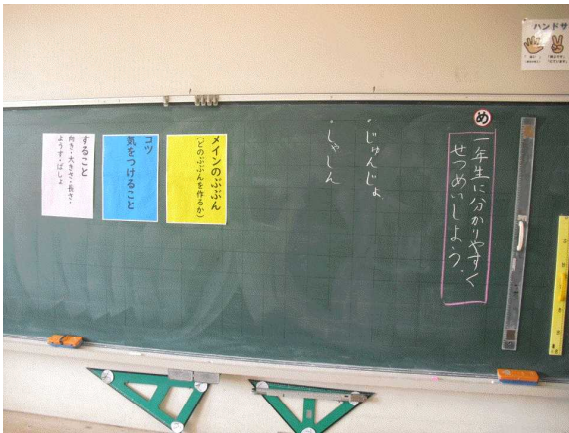 ハンドサ
め
一年生に分かりやすく
せつめいしよう。
・じゅんじょ
・しゃしん
メインのぶぶん
(どのぶぶんを作るか)
コツ
気をつけること
すること
向き・大きさ・長さ・
ようす・ばしょ